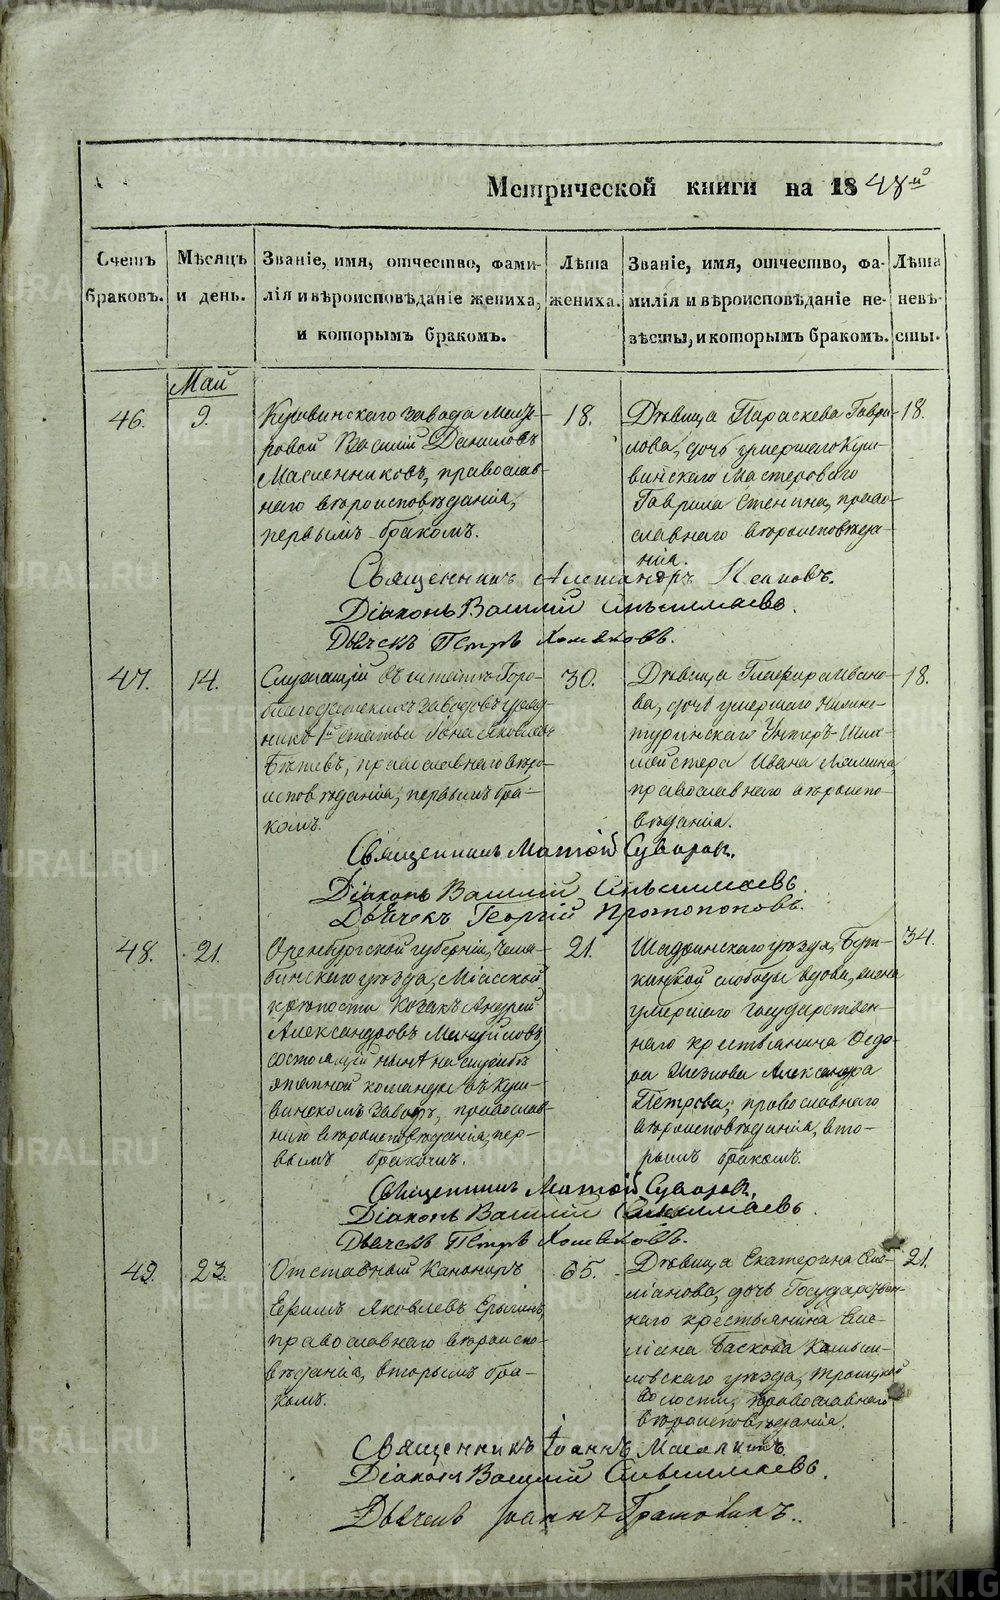 Метрической книги на 1848й
Счетъ браковъ.
Мѣсяцъ и день.
Званіе, имя, отчество, фами-
лія и вѣроисповѣданіе жениха,
и которымъ бракомъ.
Лѣта жениха.
Званіе, имя, отчество, фа-
милія и вѣроисповѣданіе не-
вѣсты, и которымъ бракомъ.
Лѣта невѣ-
сты.
Май
46.
9.
Кушвинскаго завода Масте-
ровой Василій Даниловъ
Масленниковъ, православ-
наго вѣроисповѣданія,
первымъ бракомъ.
18.
Дѣвица Параскева Гаври-
лова, дочь умершаго Куш-
винскаго Мастероваго
Гаврила Стенина, право-
славнаго вѣроисповѣда-
нія.
18.
Священникъ Александръ
Діаконъ Василій
Дьячекъ Петръ Хомяковъ.
47.
14.
Служащій въ штатѣ Горо-
благодатскихъ заводовъ уряд-
никъ 1й статьи Яковлевъ
православнаго вѣро-
исповѣданія, первымъ бра-
комъ.
30.
Дѣвица Глафира Ивано-
ва, дочь умершаго Нижне-
туринскаго Унтеръ-Ших-
мейстера Ивана Лямина,
православнаго вѣроиспо-
вѣданія.
18.
Священникъ Матѳій Суворовъ.
Діаконъ Василій
Дьячекъ Георгій Протопоповъ.
48.
21.
Оренбургской губерніи, Челя-
бинскаго уѣзда, Міясской
крѣпости Козакъ Андрей
Александровъ Мануйловъ,
состоящій нынѣ на службѣ
этапной команды въ Куш-
винскомъ заводѣ, православ-
наго вѣроисповѣданія, пер-
вымъ бракомъ.
21.
Шадринскаго уѣзда,
слободы вдова, жена
умершаго Государствен-
наго крестьянина Ѳедо-
ра Александра
Петрова, православнаго
вѣроисповѣданія, вто-
рымъ бракомъ.
34.
Священникъ Матѳій Суворовъ.
Діаконъ Василій
Дьячекъ Петръ Хомяковъ.
49.
23.
Отставный Канониръ
Ефимъ Яковлевъ
православнаго вѣроиспо-
вѣданія, вторымъ бра-
комъ.
65.
Дѣвица Екатерина Еме-
ліанова, дочь Государствен-
наго крестьянина Еме-
ліана Баскова Камыш-
ловскаго уѣзда, Троицкой
волости, православнаго
вѣроисповѣданія.
21.
Священникъ Іоаннъ
Діаконъ Василій
Дьячекъ Іоаннъ
METRIKI.GASO-URAL.RU